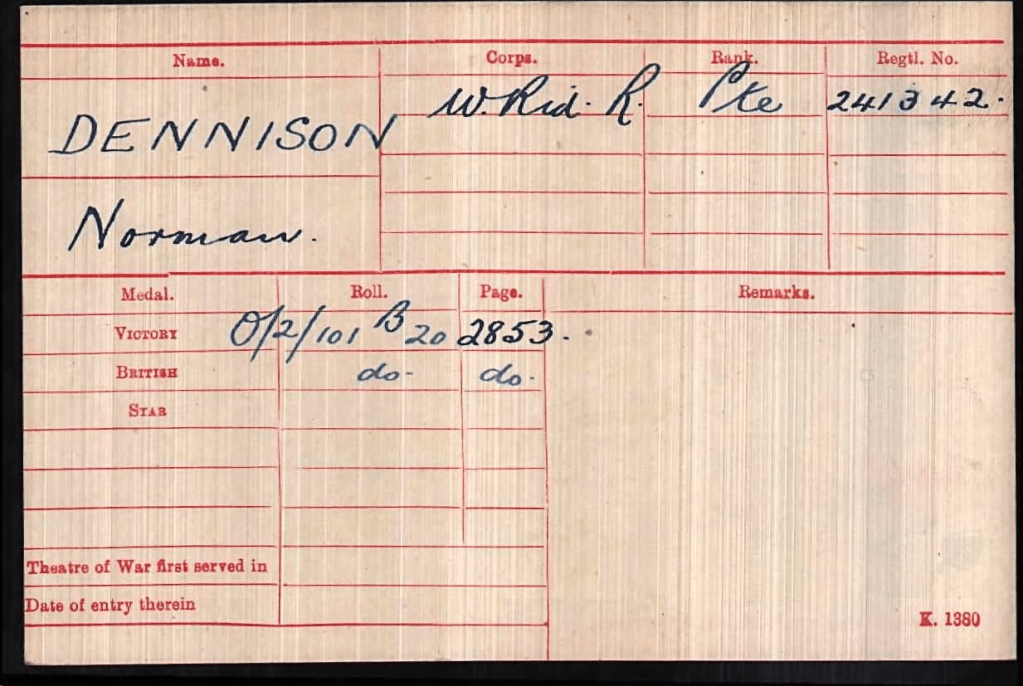 Name. Corps. Rank. Regtl. No.
DENNISON W. Rid. R. Pte 241342.
Norman.
Medal. Roll. Page. Remarks.
VICTORY O/2/101 B 20 2853.
BRITISH do- do-
STAR
Theatre of War first served in
Date of entry therein
K. 1380